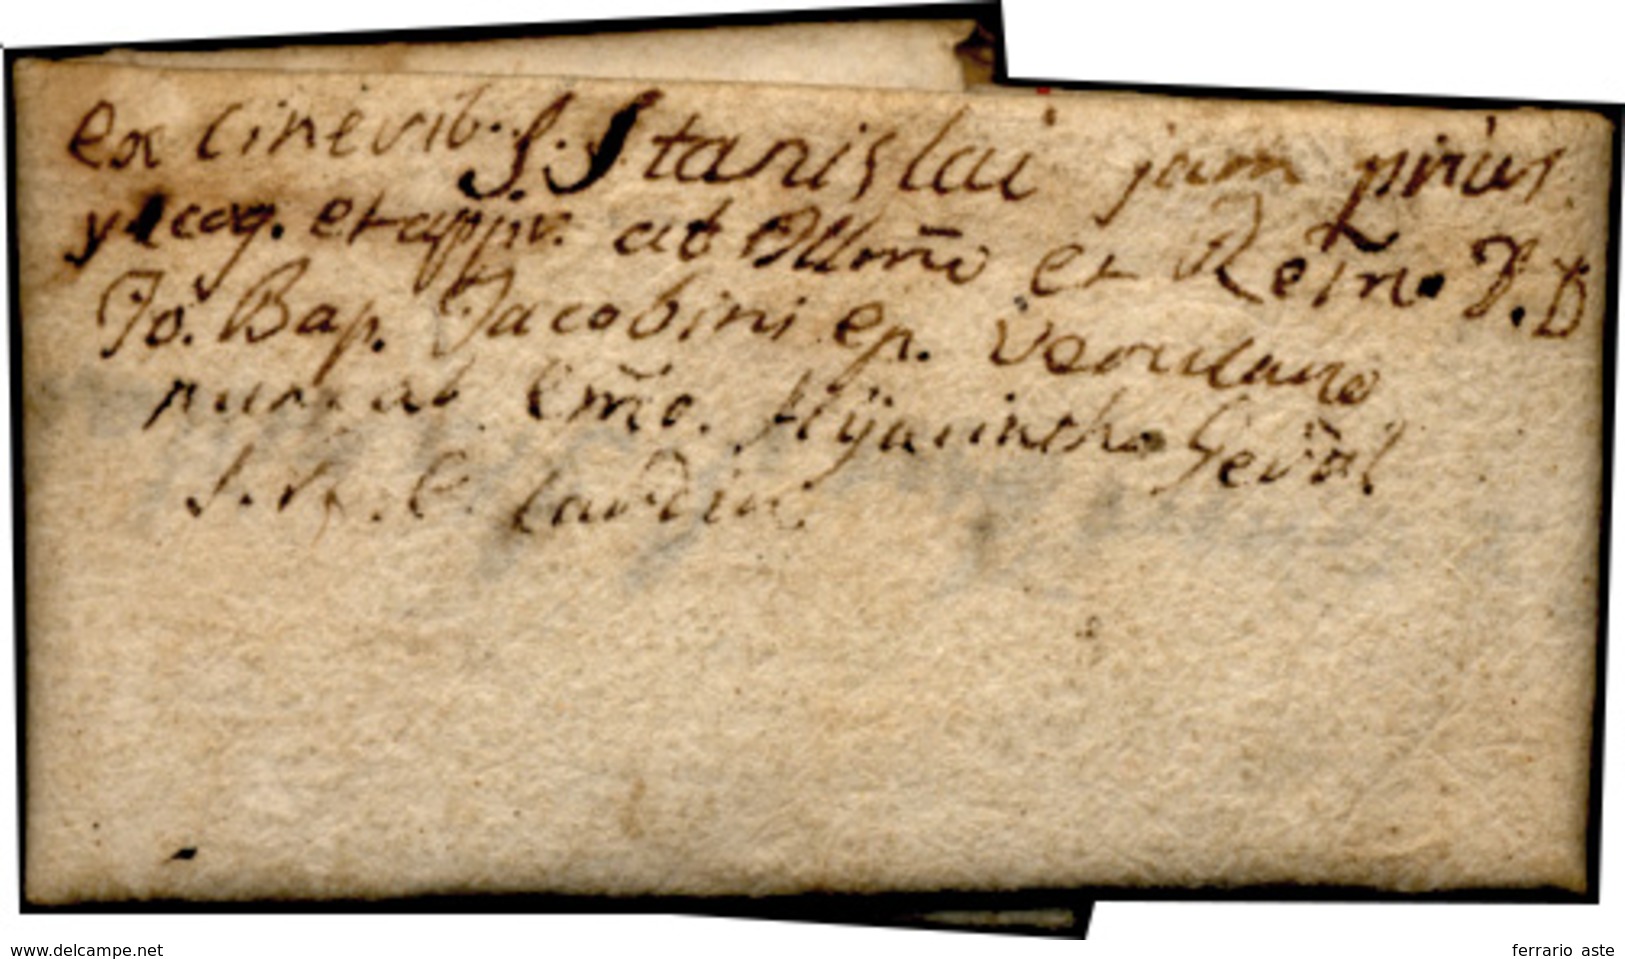 ex cinerib. S. Stanislai jam prius
recog. et appr. ab Illm̃o et Rem̃o D. D
Jo. Bap. Jacobini ep. Verulano
nunc ab Em̃o. Hyacintho
S. R. E. Cardin.
www.delcampe.net
ferrario aste